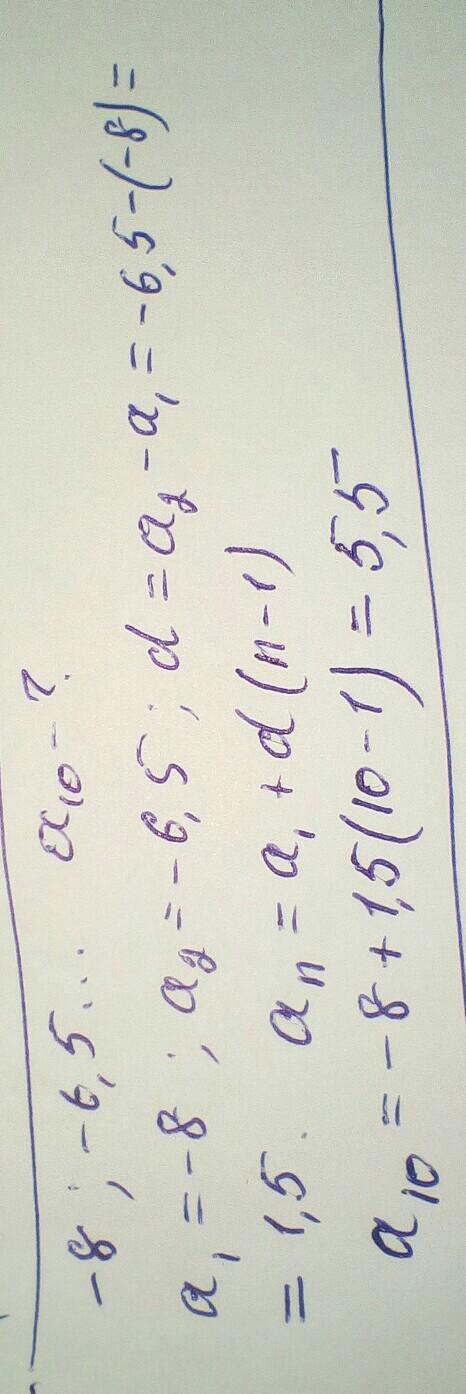 -8; -6,5... a₁₀ - ?
a₁ = -8; a₂ = -6,5; d = a₂ - a₁ = -6,5-(-8) =
= 1,5. aₙ = a₁ + d(n-1)
a₁₀ = -8 + 1,5(10-1) = 5,5